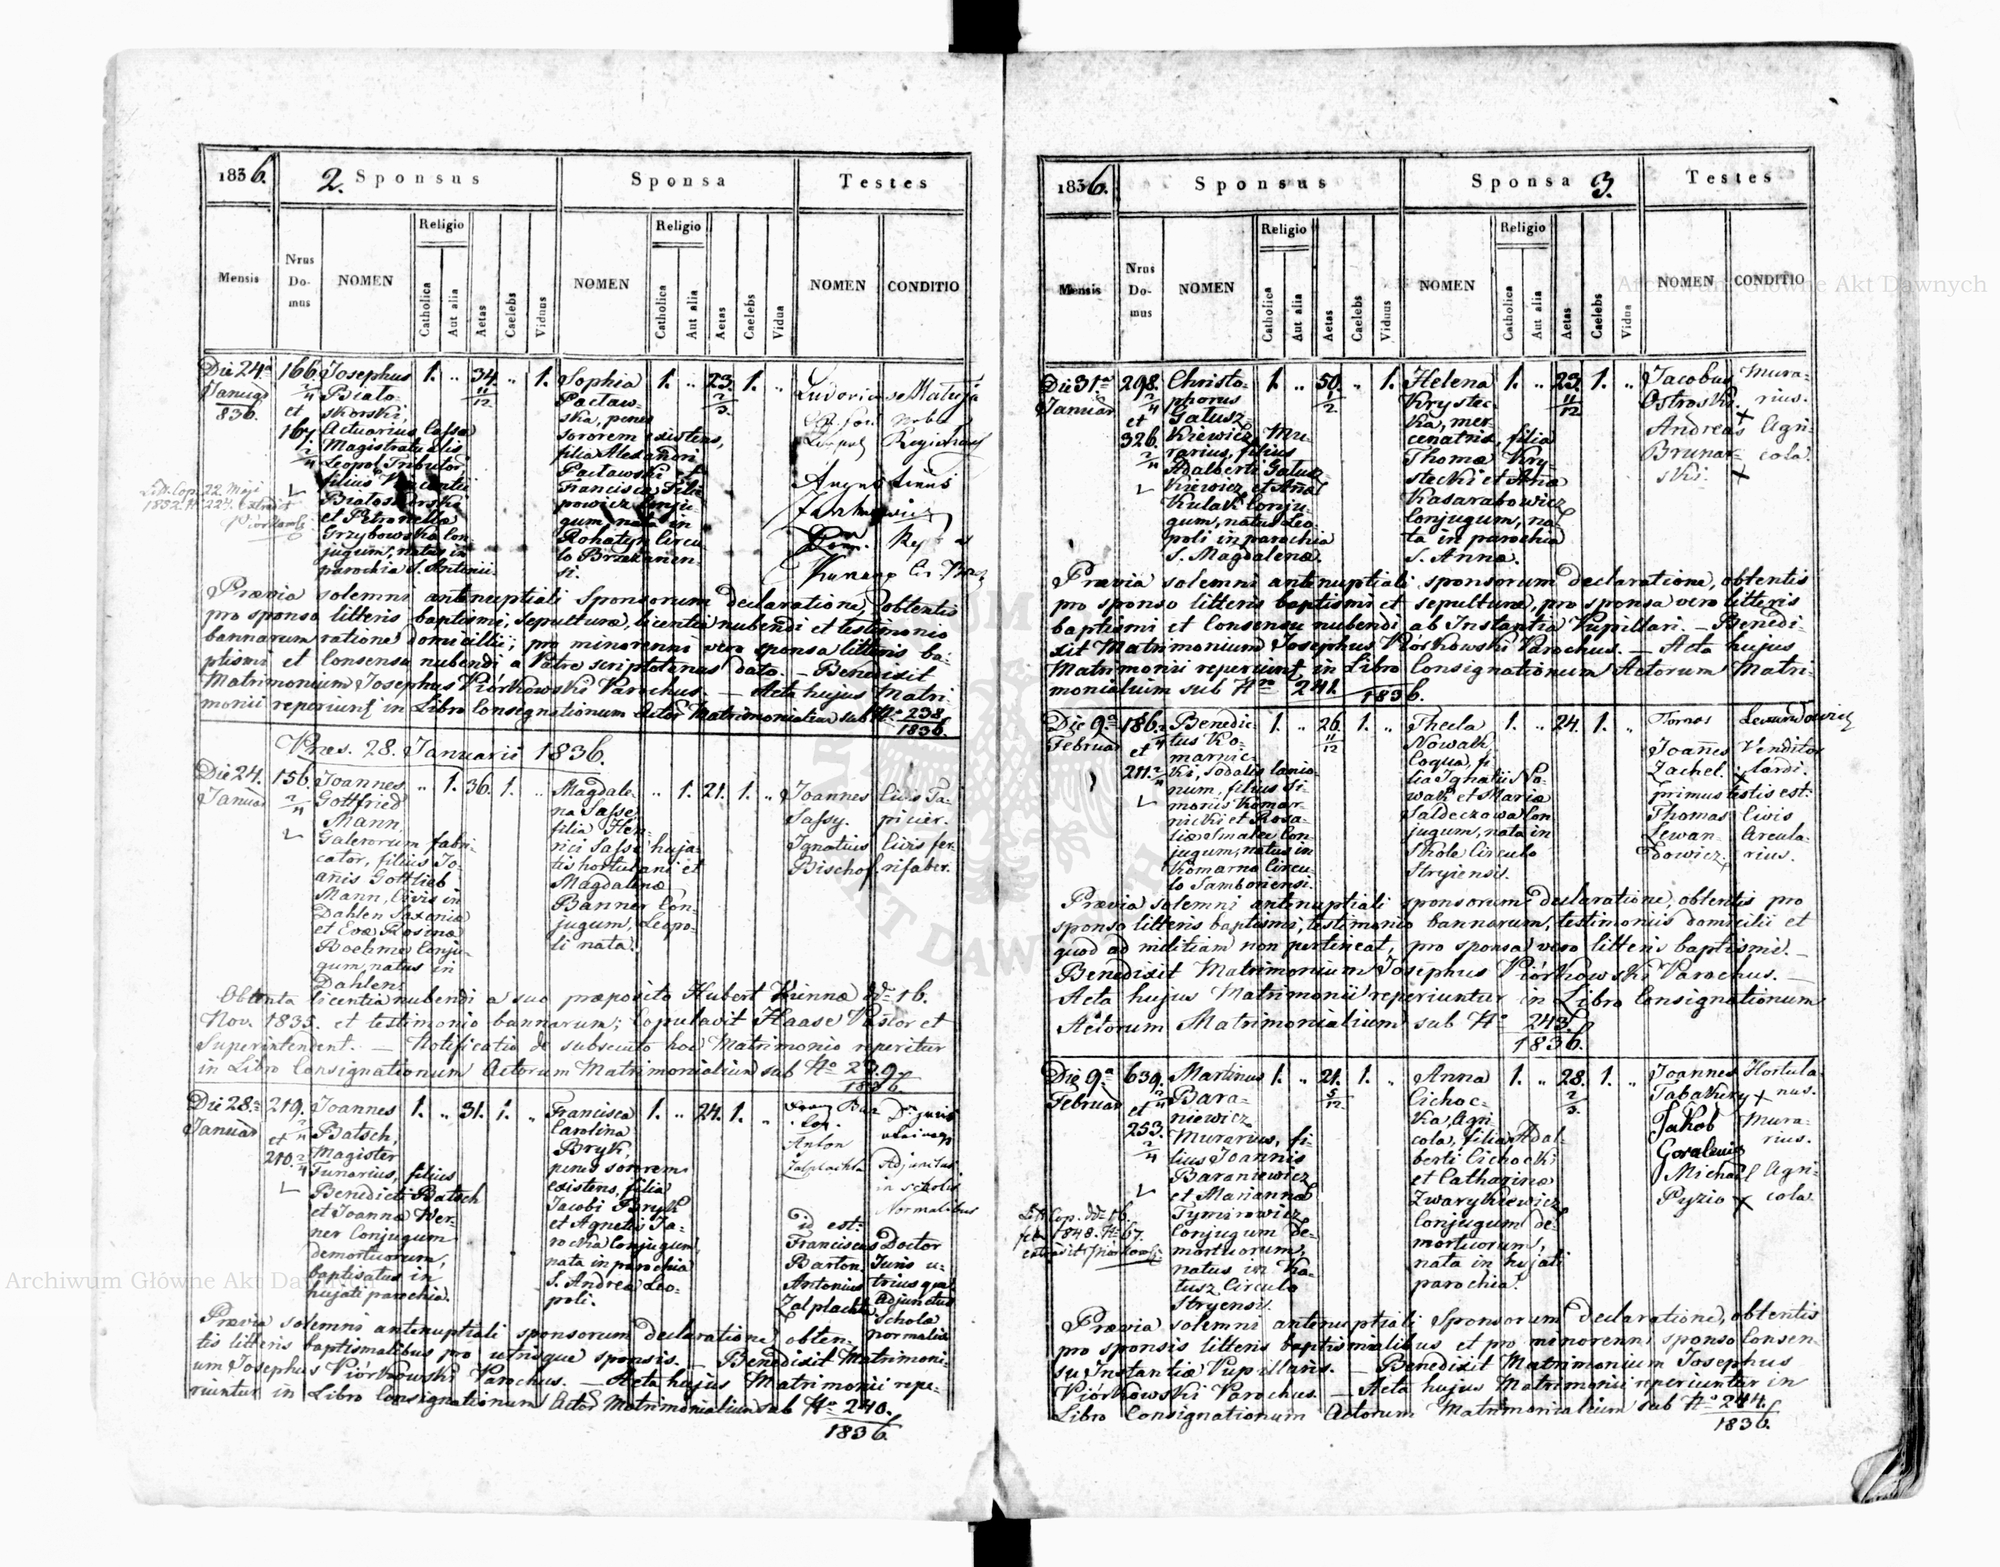 1836.
2. Sponsus
Sponsa
Testes
Mensis
Nrus Do- mus
NOMEN
Religio
Catholica
Aut alia
Aetas
Caelebs
Viduus
NOMEN
Religio
Catholica
Aut alia
Aetas
Caelebs
Vidua
NOMEN
CONDITIO
Die 24ª
Januar
836.
166.
2/4
et
167
Josephus
Biało-
skórski,
Actuarius Cassa
Magistratualis
Leopol Tributor,
filius
Białoskorski
et Petronella
Grzybowska Con-
jugum, natus in
parochia S. Antonii.
1. „ 34. 11/12 „ 1.
Sophia
Pactaw-
ska, penes
sororem existens,
filia Alexandri
Pactawski et
Francisca Fili-
powicz Conju-
gum, nata in
Rohatyn Circu
lo Brzezanen-
si.
1. „ 23. 2/3 1. „
Litt. Cop. 22. Maji
1852. N 227. extradit
Piórkowski
Prævia solemni antenuptiali Sponsorum declaratione, obtentis
pro sponso litteris baptismi, sepulturæ, licentia nubendi et testimonio
bannarum ratione domicilii; pro minorenni vero sponsa litteris ba-
ptismi et Consensu nubendi a Patre scriptotenus dato. – Benedixit
Matrimonium Josephus Piórkowski Parochus. – Acta hujus Matri-
monii reperiunt in Libro Consignationum Actor Matrimonialium sub No 238.
1836.
Pres. 28. Januarii 1836.
Die 24.
Januar
156.
2/4
Joannes
Gottfried
Mann,
Galerorum fabri-
cator, filius Jo-
anis Gottlieb
Mann, Civis in
Dahlen Saxoniæ
et Evæ Rosinæ
Boehme Conju-
gum, natus in
Dahlen.
„ 1. 36. 1. „
Magdale-
na Sasse,
filia Hen-
rici Sasse huja-
tis hortulani et
Magdalenæ
Banner Con-
jugum, Leopo-
li nata.
„ 1. 21. 1. „
Joannes
Sassy.
Ignatius
Bischof.
Civis Ta-
picier.
Civis fer-
rifaber.
Obtenta licentia nubendi a suo præposito Hubert Krinna ddo 16.
Nov. 1835. et testimonio bannarum; Copulavit Haase Pastor et
Superintendent. – Notificatio de subsecuto hoc Matrimonio reperitur
in Libro Consignationum Actorum Matrimonialium sub No 239.
1836.
Die 28ª
Januar
219.
2/4
et
210. 2/4
Joannes
Batsch,
Magister
Funarius, filius
Benedicti Batsch
et Joannæ Wer-
ner Conjugum
demortuorum,
baptisatus in
hujati parochia.
1. „ 31. 1. „
Francisca
Carolina
Bryk,
penes sororem
existens, filia
Jacobi Bryk
et Agnetis Ja-
rocka Conjugum,
nata in parochia
S. Andreæ Leo-
poli.
1. „ 24. 1. „
Anton
Zalplachta
Adjunctus
in scholis
Normalibus
id est:
Franciscus
Barton.
Antonius
Zalplachta
Doctor
Juris u-
triusque
Adjunctus
Schola
normalis
Prævia solemni antenuptiali sponsorum declaratione, obten-
tis litteris baptismalibus pro utrisque sponsis. – Benedixit Matrimoni-
um Josephus Piórkowski Parochus. – Acta hujus Matrimonii repe-
riuntur in Libro Consignationum Actor Matrimonialium sub No 240.
1836.
1836.
Sponsus
Sponsa 3.
Testes
Mensis
Nrus Do- mus
NOMEN
Religio
Catholica
Aut alia
Aetas
Caelebs
Viduus
NOMEN
Religio
Catholica
Aut alia
Aetas
Caelebs
Vidua
NOMEN
CONDITIO
Die 31ª
Januar
298.
2/4
et
326.
2/4
Christo-
phorus
Gatusz-
kiewicz, Mu-
rarius, filius
Adalberti Gatusz
kiewicz et Añæ
Kulak Conju-
gum, natus Leo-
poli in parochia
S. Magdalenæ.
1. „ 50. 1/2 „ 1.
Helena
Krystec-
ka, mer-
cenatris, filia
Thomæ Kry-
stecki et Añæ
Kasarabowicz
Conjugum, na-
ta in parochia
S. Annæ.
1. „ 23. 11/12 1. „
Jacobus
Ostroski. +
Andreas
Brunar-
ski. +
Mura-
rius.
Agri-
cola.
Prævia solemni antenuptiali sponsorum declaratione, obtentis
pro sponso litteris baptismi et sepulturæ, pro sponsa vero litteris
baptismi et Consensu nubendi ab Instantia Pupillari. – Benedi-
xit Matrimonium Josephus Piórkowski Parochus. – Acta hujus
Matrimonii reperiunt in Libro Consignationum Actorum Matri-
monialium sub Nro 241.
1836.
Die 9ª
Februar
186.
2/4
et
211. 2/4
Benedic-
tus Ko-
marnic-
ki, Sodalis lanio-
num, filius Si-
monis Komar-
nicki et Rosa-
liæ Smalec Con-
jugum, natus in
Komarno Circu-
lo Samboriensi.
1. „ 26. 11/12 1. „
Thecla
Nowak,
Coqua, fi-
lia Ignatii No-
wak et Mariæ
Saldeczowa Con
jugum, nata in
Skole Circulo
Stryiensis.
1. „ 24. 1. „
Joañes
Zachel. +
primus testis est.
Thomas
Lewan-
dowicz.
Venditor
lardi.
Civis
Arcula-
rius.
Prævia solemni antenuptiali sponsorum declaratione, obtentis pro
sponso litteris baptismi, testimonio bannarum, testimoniis domicilii et
quod ad militiam non pertineat, pro sponsa vero litteris baptismi. –
Benedixit Matrimonium Josephus Piórkowski Parochus. –
Acta hujus Matrimonii reperiuntur in Libro Consignationum
Actorum Matrimonialium sub No 243.
1836.
Die 9ª
Februar
639.
2/4
et
253.
2/4
Martinus
Bara-
niewicz
Murarius, fi-
lius Joannis
Baraniewicz
et Mariannæ
Tymirowicz
Conjugum de-
mortuorum,
natus in Ka-
tusz Circulo
Stryensis.
1. „ 21. 5/12 1. „
Anna
Cichoc-
ka, Agri-
cola, filia Adal-
berti Cichocki
et Catharinæ
Zwarykiewicz
Conjugum de-
mortuorum,
nata in hujati
parochia.
1. „ 28. 2/3 1. „
Joannes
Tabakery +
Jakob
Goralewicz
Michael
Pyzio +
Hortula-
nus.
Mura-
rius.
Agri-
cola.
Litt. Cop. ddo 16.
1848. No 67.
extradit Piórkowski
Prævia solemni antenuptiali Sponsorum declaratione, obtentis
pro sponsis litteris baptismalibus et pro minorenni sponso Consen-
su Instantiæ Pupillaris. – Benedixit Matrimonium Josephus
Piórkowski Parochus. – Acta hujus Matrimonii reperiuntur in
Libro Consignationum Actorum Matrimonialium sub No 244.
1836.
Archiwum Główne Akt Dawnych
Archiwum Główne Akt Dawnych